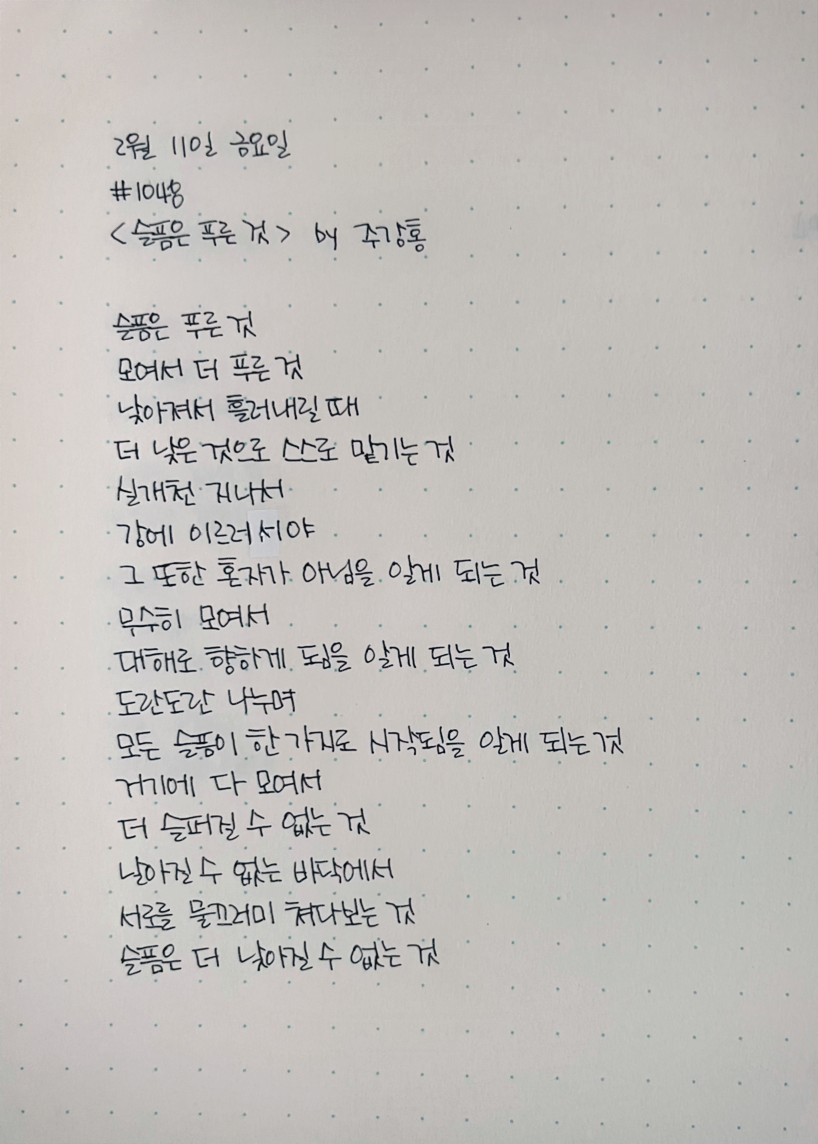 2월 11일 금요일
#1048
<슬픔은 푸른 것> by 주강홍
슬픔은 푸른 것
모여서 더 푸른 것
낮아져서 흘러내릴 때
더 낮은 것으로 스스로 맡기는 것
실개천 지나서
강에 이르러서야
그 또한 혼자가 아님을 알게 되는 것
무수히 모여서
대해로 향하게 됨을 알게 되는 것
도란도란 나누며
모든 슬픔이 한 가지로 시작됨을 알게 되는 것
거기에 다 모여서
더 슬퍼질 수 없는 것
낮아질 수 없는 바닥에서
서로를 물끄러미 쳐다보는 것
슬픔은 더 낮아질 수 없는 것